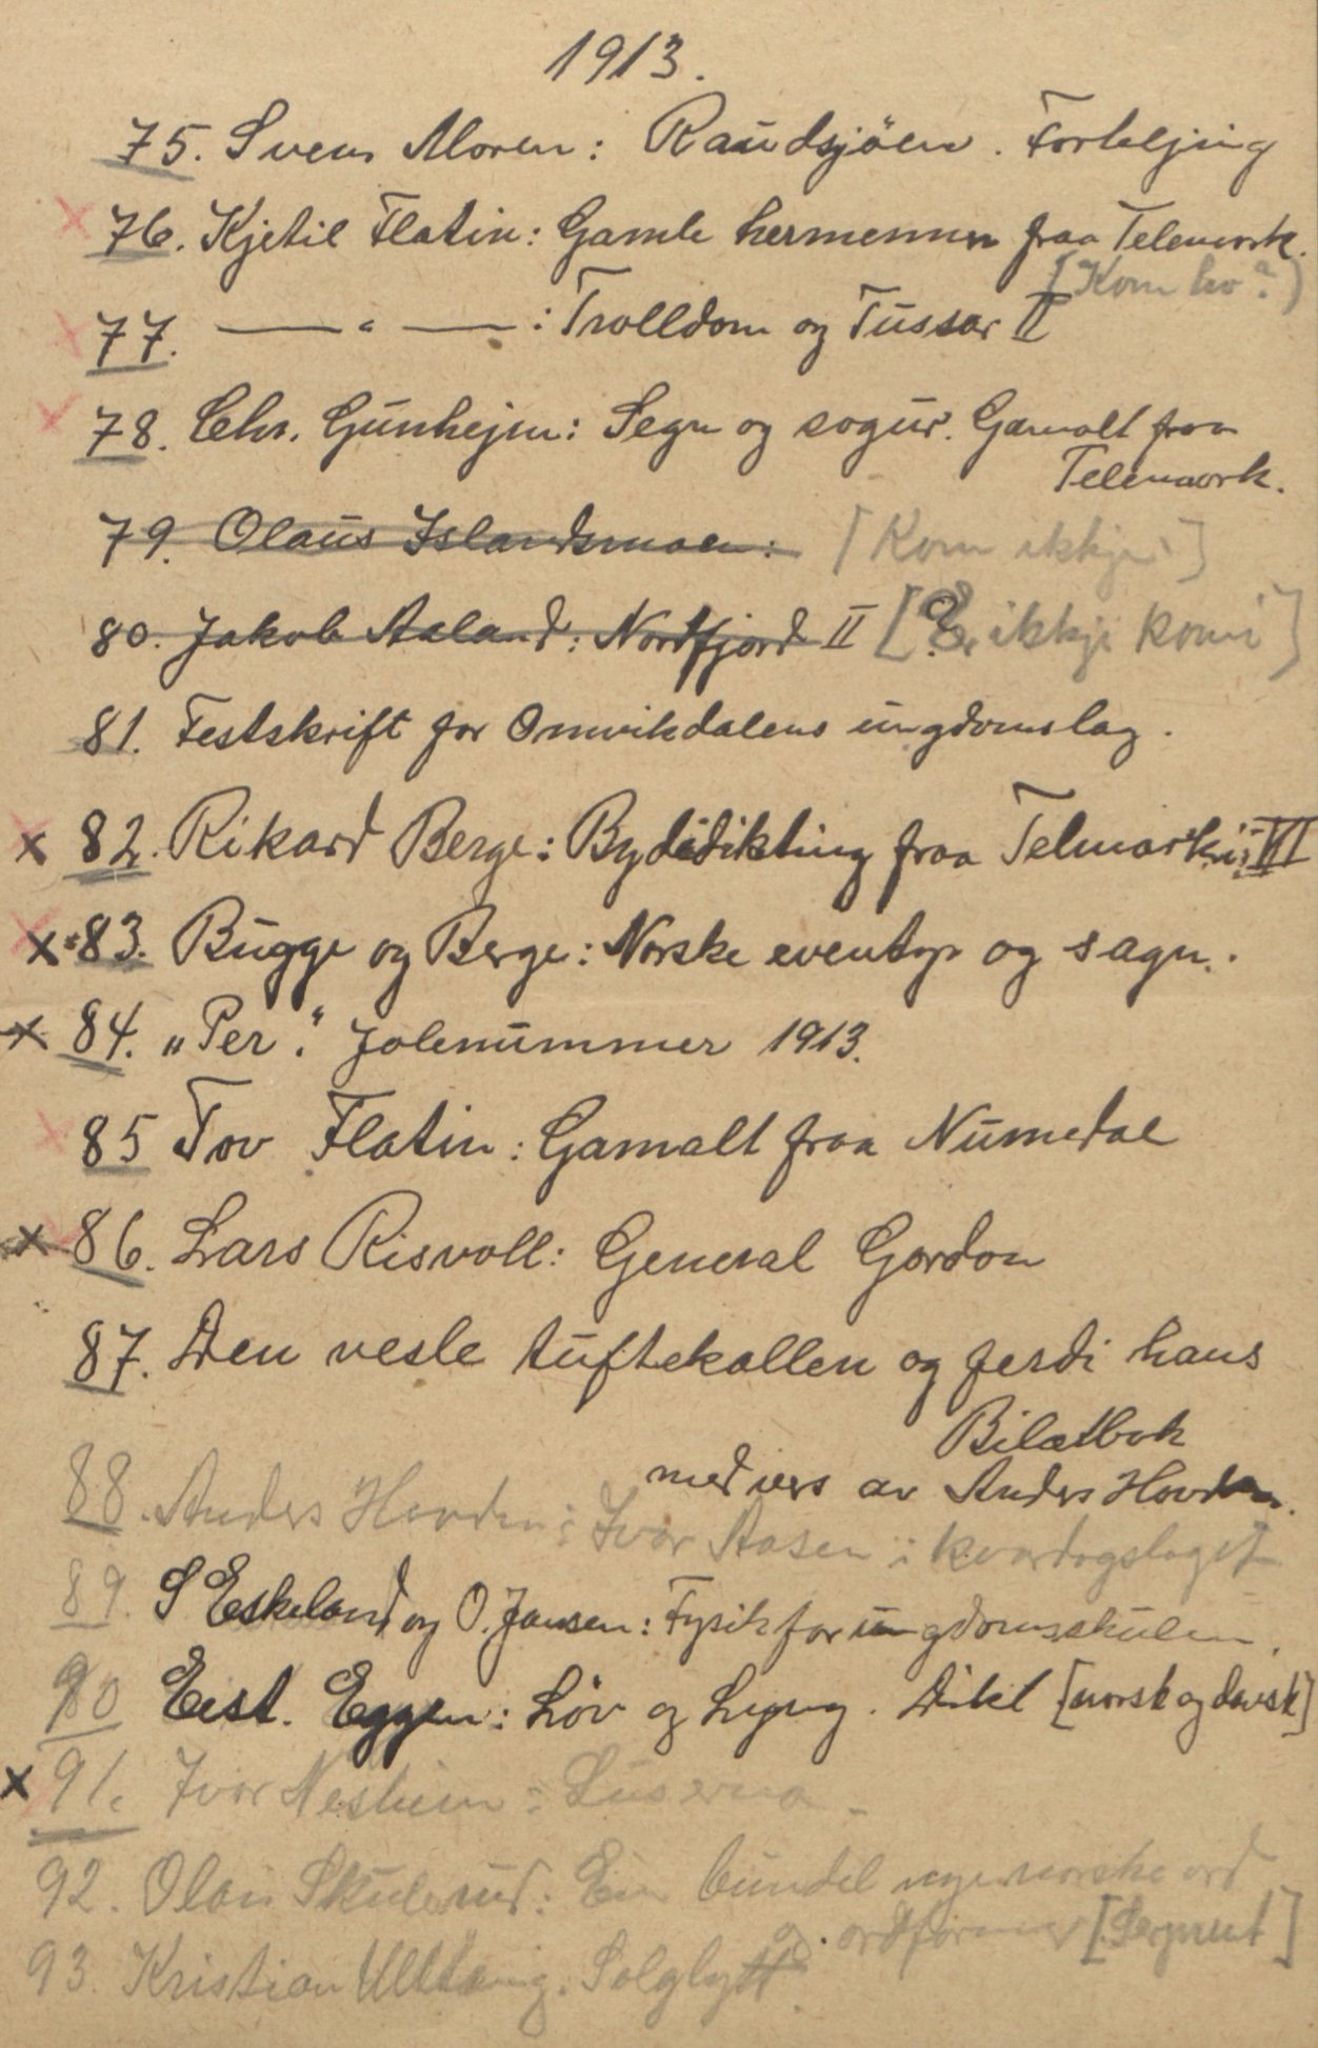 1913.
75. Sven Moren: Raudsjöen. Forteljing
x 76. Kjetil Flatin: Gamle hermennar fraa Telemork.
(Kom ho?)
x 77. — " — : Trolldom og Tussar II
x 78. Chr. Gunhejm: Segn og sogur. Gamalt fraa
Telemork.
79. Olaus Islandsmoen: [Kom ikkje]
80. Jakob Aaland: Nordfjord II [Er ikkje komi]
81. Festskrift for Omvikdalens ungdomslag.
x 82. Rikard Berge: Bydedikting fraa Telmarki; VI
x 83. Bugge og Berge: Norske eventyr og sagn.
x 84. „Per." Jolenummer 1913.
x 85 Tov Flatin: Gamalt fraa Numedal
x 86. Lars Risvoll: General Gordon
87. Den vesle tuftekallen og ferdi hans
Bilætbok
med vers av Anders Hovden.
88. Anders Hovden: Ivar Aasen i kvardagslaget
89. S Eskeland og O. Jansen: Fysik for ungdomsskulen.
90 Eist. Eggen: Löv og Lyng. Dikt [norsk og dansk]
x 91. Ivar Nesheim: Luserna.
92. Olai Skulerud: Ein bundel nye norske ord
og ordformer [Serprent]
93. Kristian Ulltang. Solglytt.